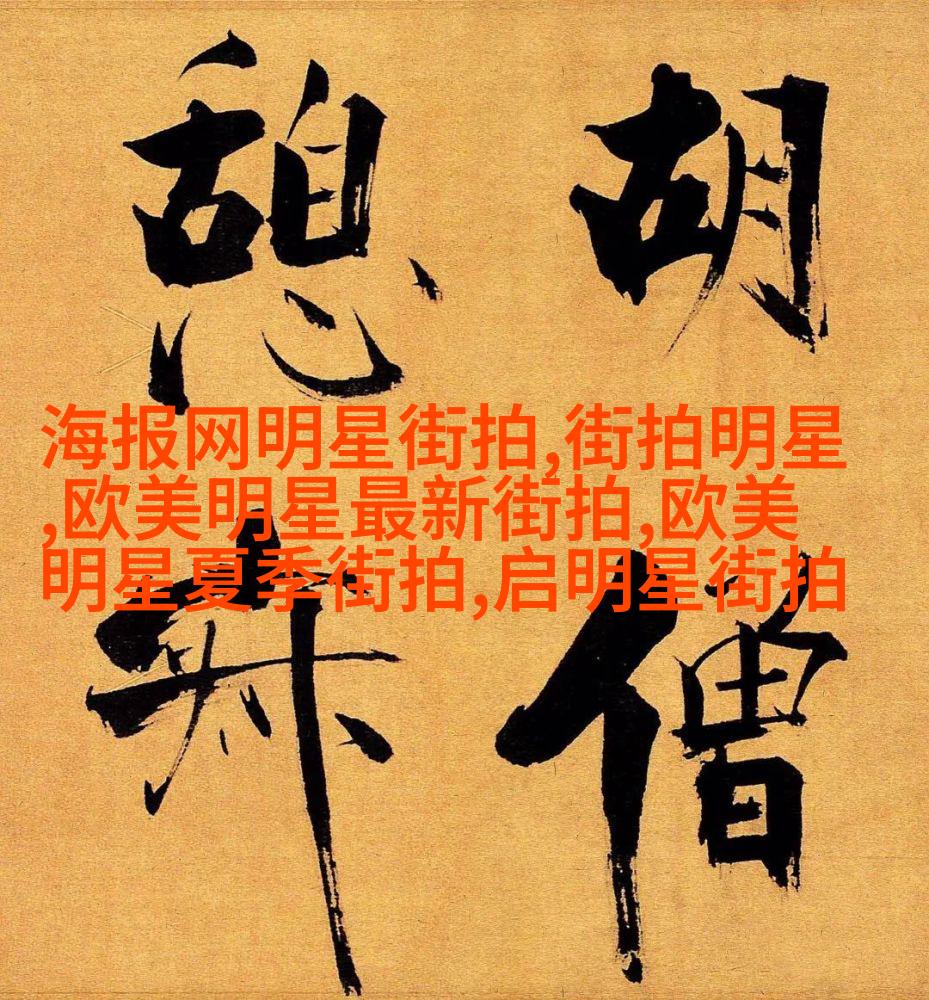 胡僧
憩
海报网明星街拍,街拍明星
,欧美明星最新街拍,欧美
明星夏季街拍,启明星街拍